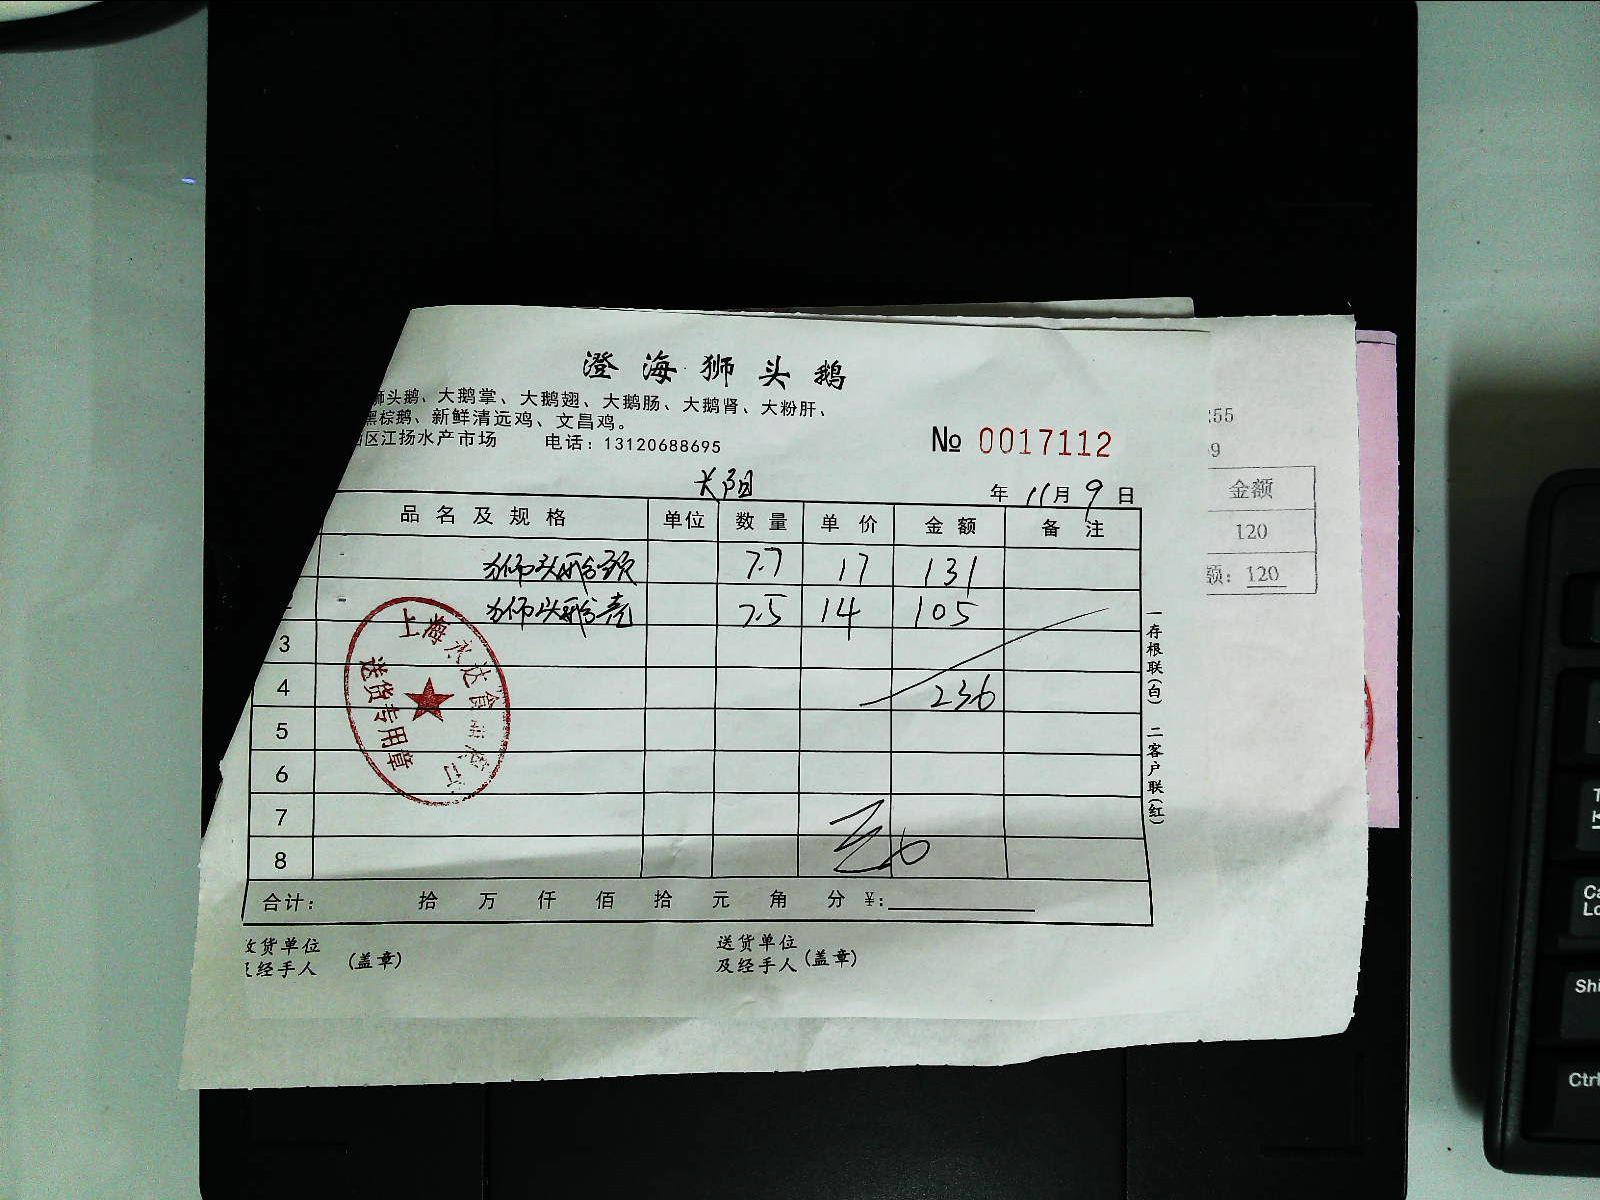 澄海狮头鹅
狮头鹅、大鹅掌、大鹅翅、大鹅肠、大鹅肾、大粉肝、
黑棕鹅、新鲜清远鸡、文昌鸡。
区江扬水产市场 电话：13120688695
№ 0017112
大阳
年 11月 9日
品名及规格 单位 数量 单价 金额 备注
狮头鹅颈 7.7 17 131
狮头鹅壳 7.5 14 105
3
4 236
5
6
7
8
合计： 拾 万 仟 佰 拾 元 角 分 ¥：
收货单位
及经手人 （盖章）
送货单位
及经手人（盖章）
一存根联（白） 二客户联（红）
上海永达食
送货专用章
255
99
金额
120
额：120
Shi
Ctrl